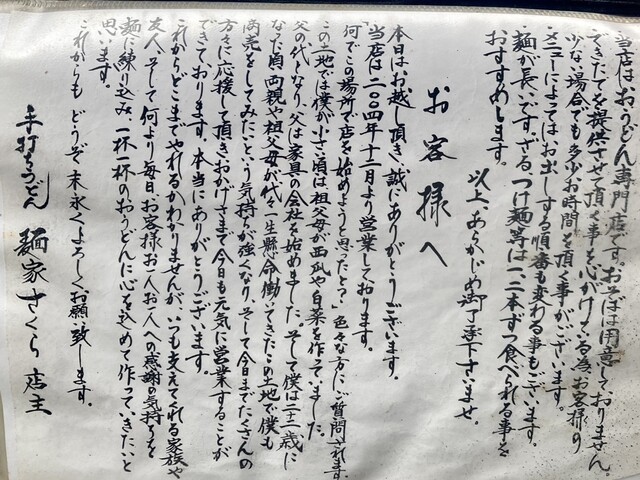 当店はおうどん専門店です。おそばは用意しておりません。
できたてを提供させて頂く事を心がけている為、お客様の
少ない場合でも多少お時間を頂く事がございます。
・メニューによってはお出しする順番も変わる事もございます。
・麺が長いです。ざる、つけ麺等は一、二本ずつ食べられる事を
おすすめします。
以上、あらかじめ御了承下さいませ。
お客様へ
本日はお越し頂き、誠にありがとうございます。
当店は二〇〇四年十二月より営業しております。
「何でこの場所で店を始めようと思ったと？」色々な方にご質問されます。
この土地では僕が小さい頃は祖父母が西瓜や白菜を作っていました。
父の代になり、父は家具の会社を始めました。そして僕は二十三歳に
なった頃、両親や祖父母が代々一生懸命働いてきたこの土地で僕も
商売をしてみたいという気持ちが強くなり、そして今日までたくさんの
方々に応援して頂き、おかげさまで今日も元気に営業することが
できております。本当にありがとうございます。
これからどこまでやれるかわかりませんが、いつも支えてくれる家族や
友人、そして何より毎日お客様お一人お一人への感謝の気持ちを
麺に練り込み、一杯一杯のおうどんに心を込めて作っていきたいと
思います。
これからも どうぞ末永くよろしくお願致します。
手打ちうどん 麺家 さくら 店主